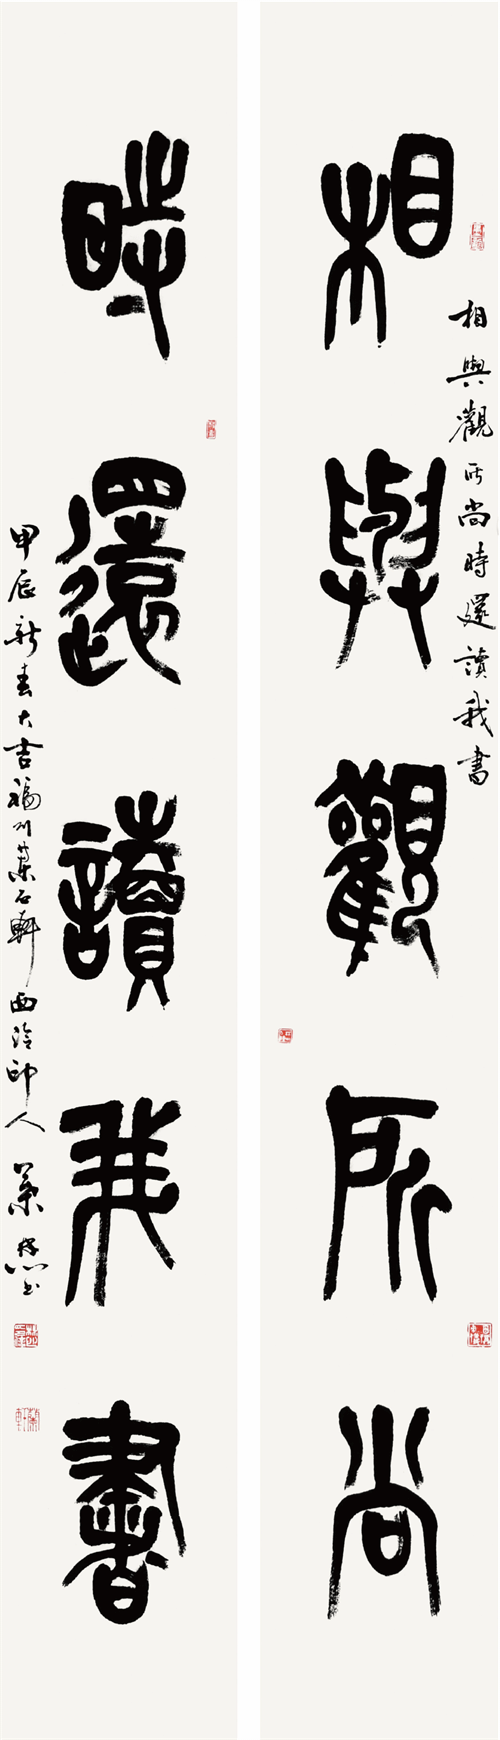 相與觀所尚
相與觀所尚時還讀我書
時還讀我書
甲辰新春大吉福州葉石軒西泠印人葉